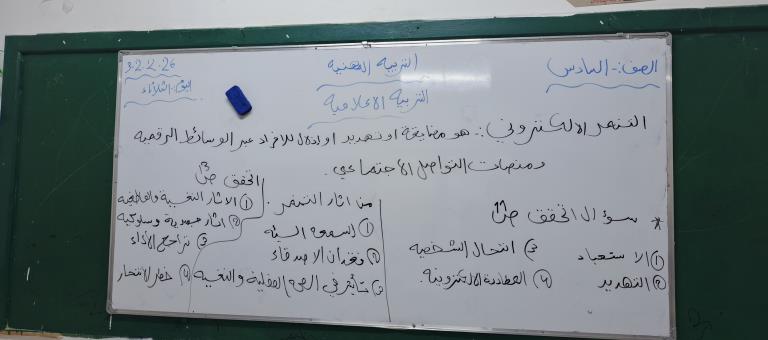 الصف:- السادس
التربية المهنية
3.2.2026
اليوم: الثلاثاء
التربية الاعلامية
التنمر الالكتروني:- هو مضايقة او تهديد او اذلال للافراد عبر الوسائط الرقمية
ومنصات التواصل الاجتماعي.
* سؤال اتحقق ص11
1) الاستعباد
2) التهديد
3) انتحال الشخصيه
4) المطاردة الالكترونية.
من اثار التنمر.
1) السمعه السيئه
2) فقدان الاصدقاء
3) تأثير في الصحه العقلية والنفسيه
اتحقق ص13
1) الاثار النفسية والعاطفيه
2) اثار جسدية وسلوكية
3) تراجع الأداء
4) خطر الانتحار